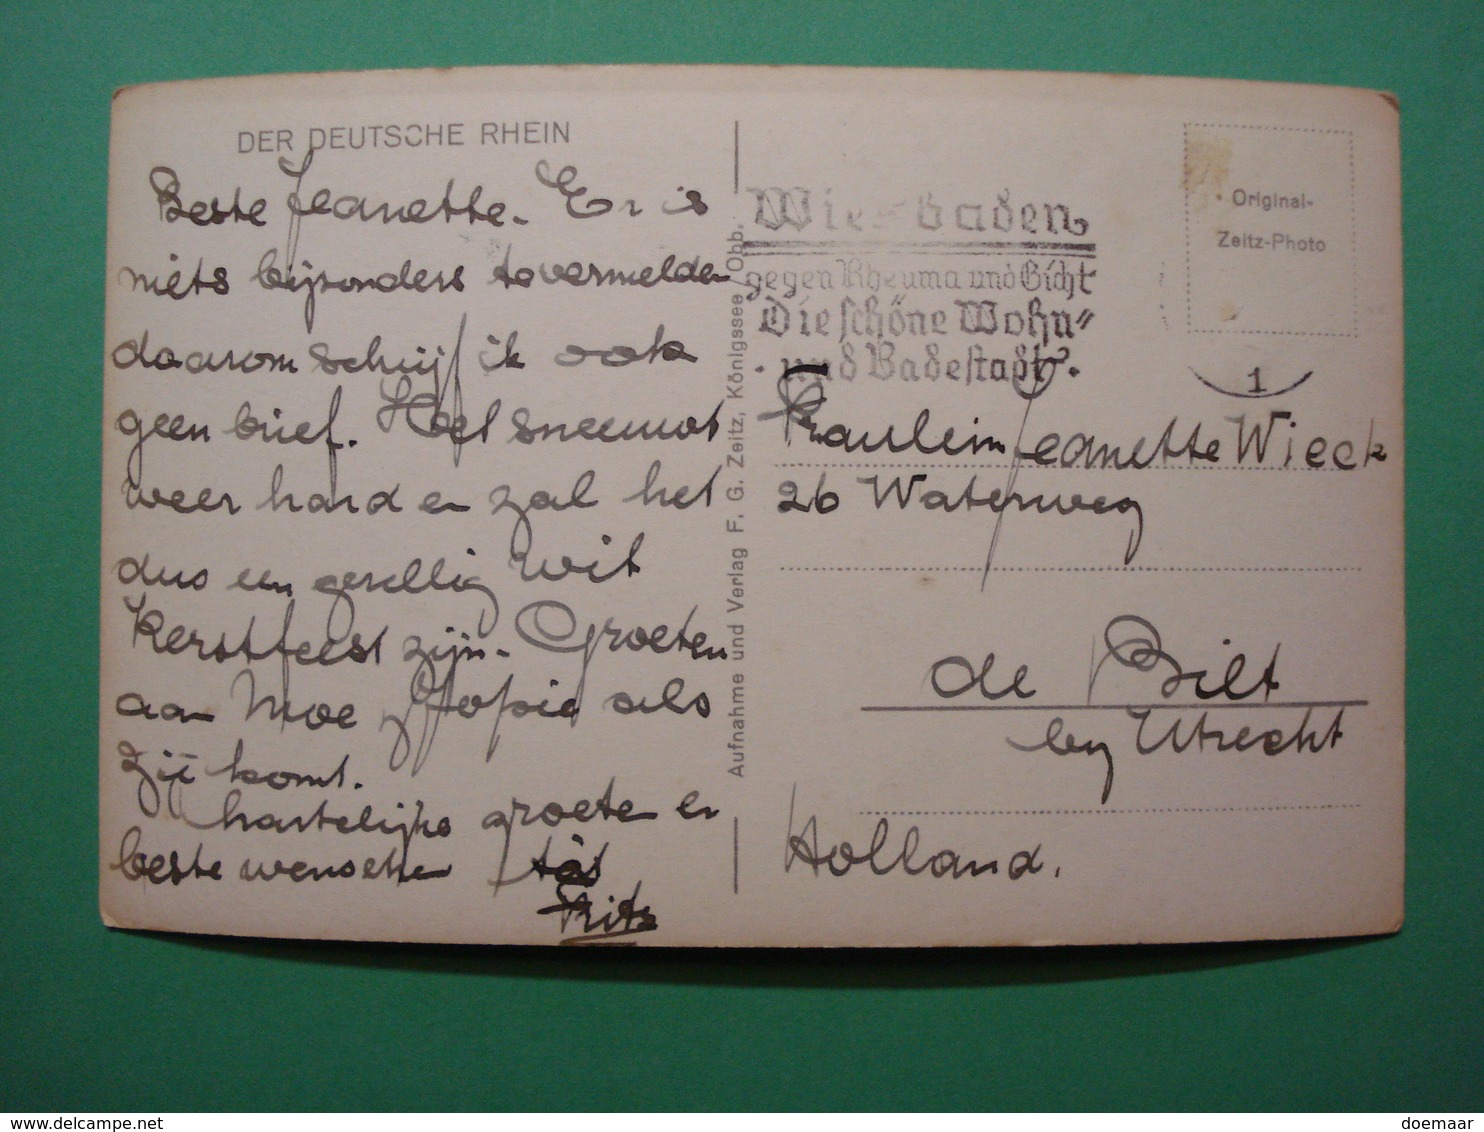 DER DEUTSCHE RHEIN
Beste Jeanette. Er is
niets bijzonders te vermelden
daarom schrijf ik ook
geen brief. Het sneeuwt
weer hard en zal het
dus een gezellig wit
Kerstfeest zijn. Groeten
aan Moe Sofie als
zij komt.
hartelijke groeten en
beste wenschen
Frits
Aufnahme und Verlag F. G. Zeitz, Königssee/Obb.
Wiesbaden
gegen Rheuma und Gicht
Die schöne Wohn-
und Badestadt.
Original-
Zeitz-Photo
1
Fraulein Jeanette Wieck
26 Waterweg
de Bilt
by Utrecht
Holland.
http://www.delcampe.net
doemaar